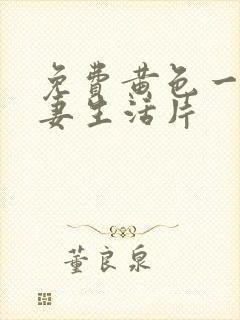 免費黄色一
妻生活片
董良泉